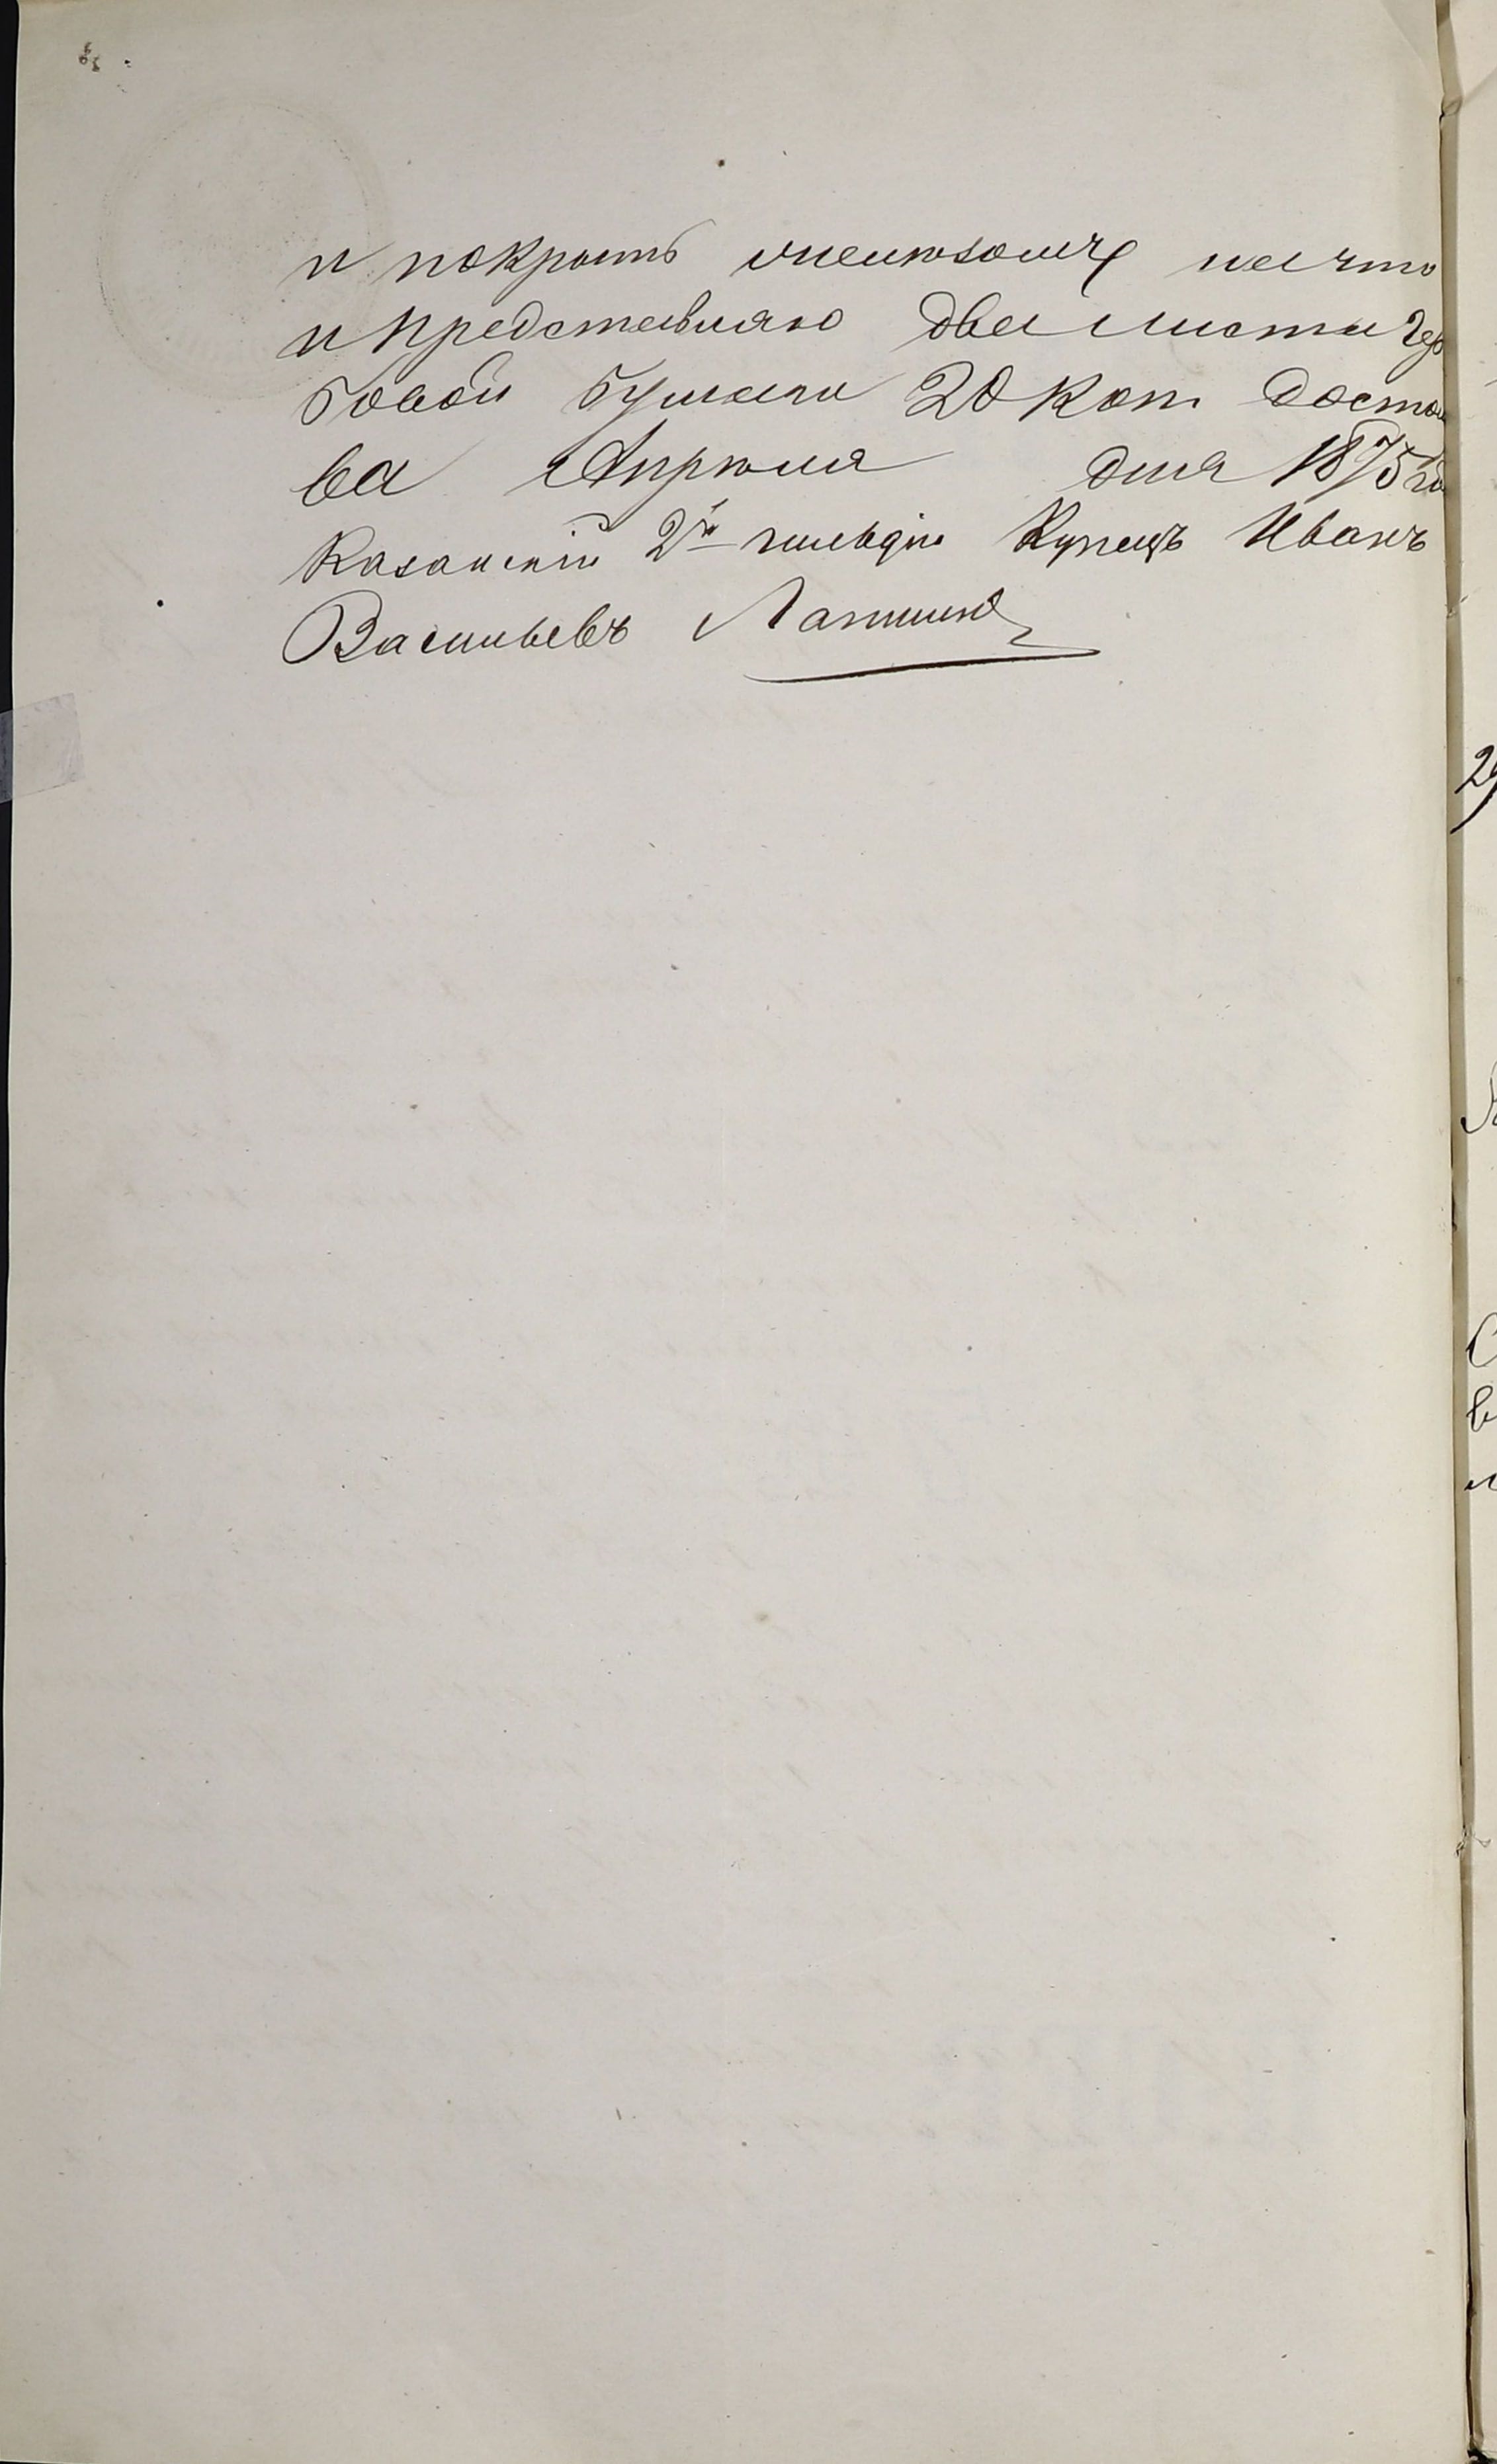 и покрыть железомъ на что
и представляю два листа гер
бовой бумаги 20 коп достоин
ва Апреля дня 1875 го
Казанскій 2й гильдіи Купецъ Иванъ
Васильевъ Лапшинъ
29
С
в